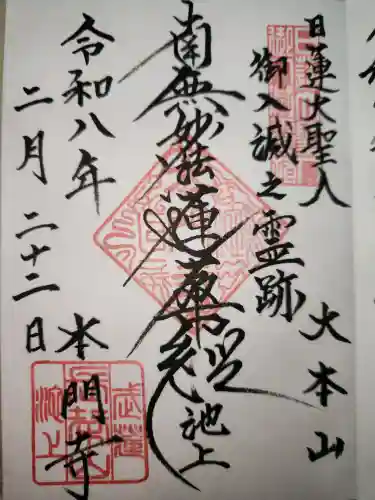 日蓮大聖人
御入滅之霊跡
大本山
南無妙法蓮華経
池上
本門寺
令和八年
二月二十二日